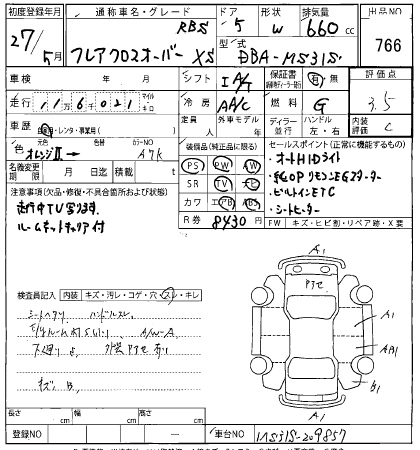 初度登録年月 通称車名・グレード RBS ドア 形状 排気量 出品NO
27年 5月 フレアクロスオーバー XS 5 W 660cc 766
型式 DBA-MS31S
車検 年 月 シフト IA/T 保証書 有・無 評価点
走行 11万6021 マイル キロ 冷房 AAC 燃料 G 3.5
車歴 自家用・レンタ・事業用( ) 定員 人 外車モデル 年 ディーラー 並行 ハンドル 左・右 内装評価 C
色 元色 オレンジII→ 色替 カラーNO A7K 装備品(純正品に限る) セールスポイント(正常に機能するもの)
名義変更期限 月 日迄 積載 t PS PW AW ・オートHIDライト
注意事項(欠品・修復・不具合箇所および状態) SR TV ナビ
走行中TV写ります カワ エアB ABS ・ビルトインETC
R券 8430円 ・シートヒーター
FW キズ・ヒビ割・リペア跡・X要
検査員記入 内装 キズ・汚レ・コゲ・穴・スレ・キレ
ハンドルスレ
A/W-A
キズ、B
A1
A1
AB1
B1
A1
長さ cm 幅 cm 高さ cm
登録NO 車台NO MS31S-209857